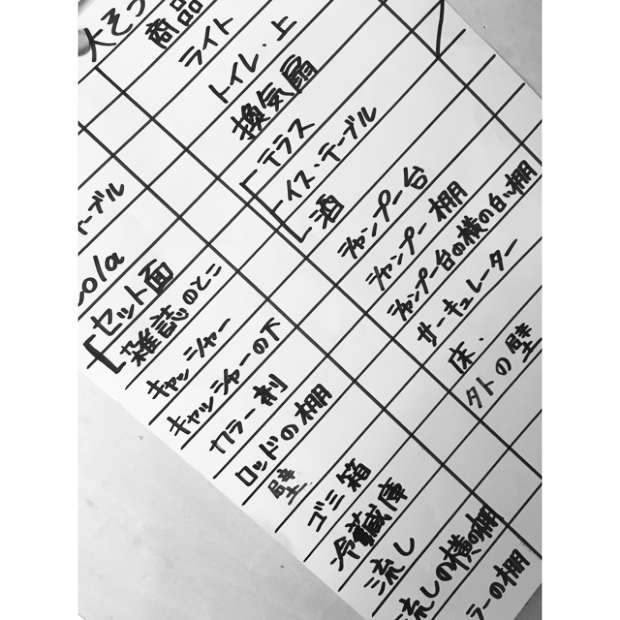 大そう
商品
ライト
トイレ・上
換気扇
テラス
イス・テーブル
酒
シャンプー台
シャンプー棚
シャンプー台の横の白い棚
サーキュレーター
床、
外の壁
ーブル
セット面
雑誌のとこ
キャッシャー
キャッシャーの下
カラー剤
ロッドの棚
壁
ゴミ箱
冷蔵庫
流し
流しの横の棚
ラーの棚